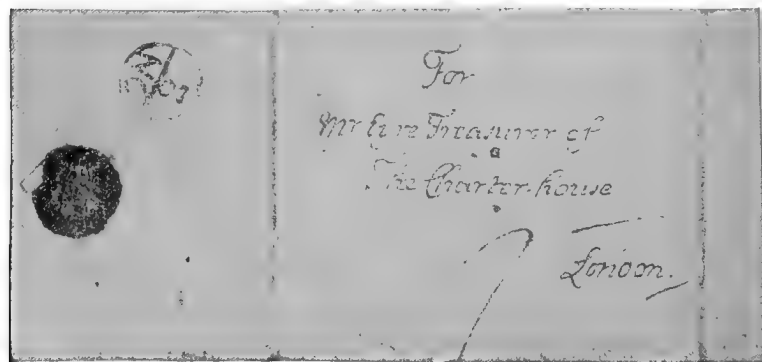 For
Mr Eyre Treasurer of
The Charter-house
London.